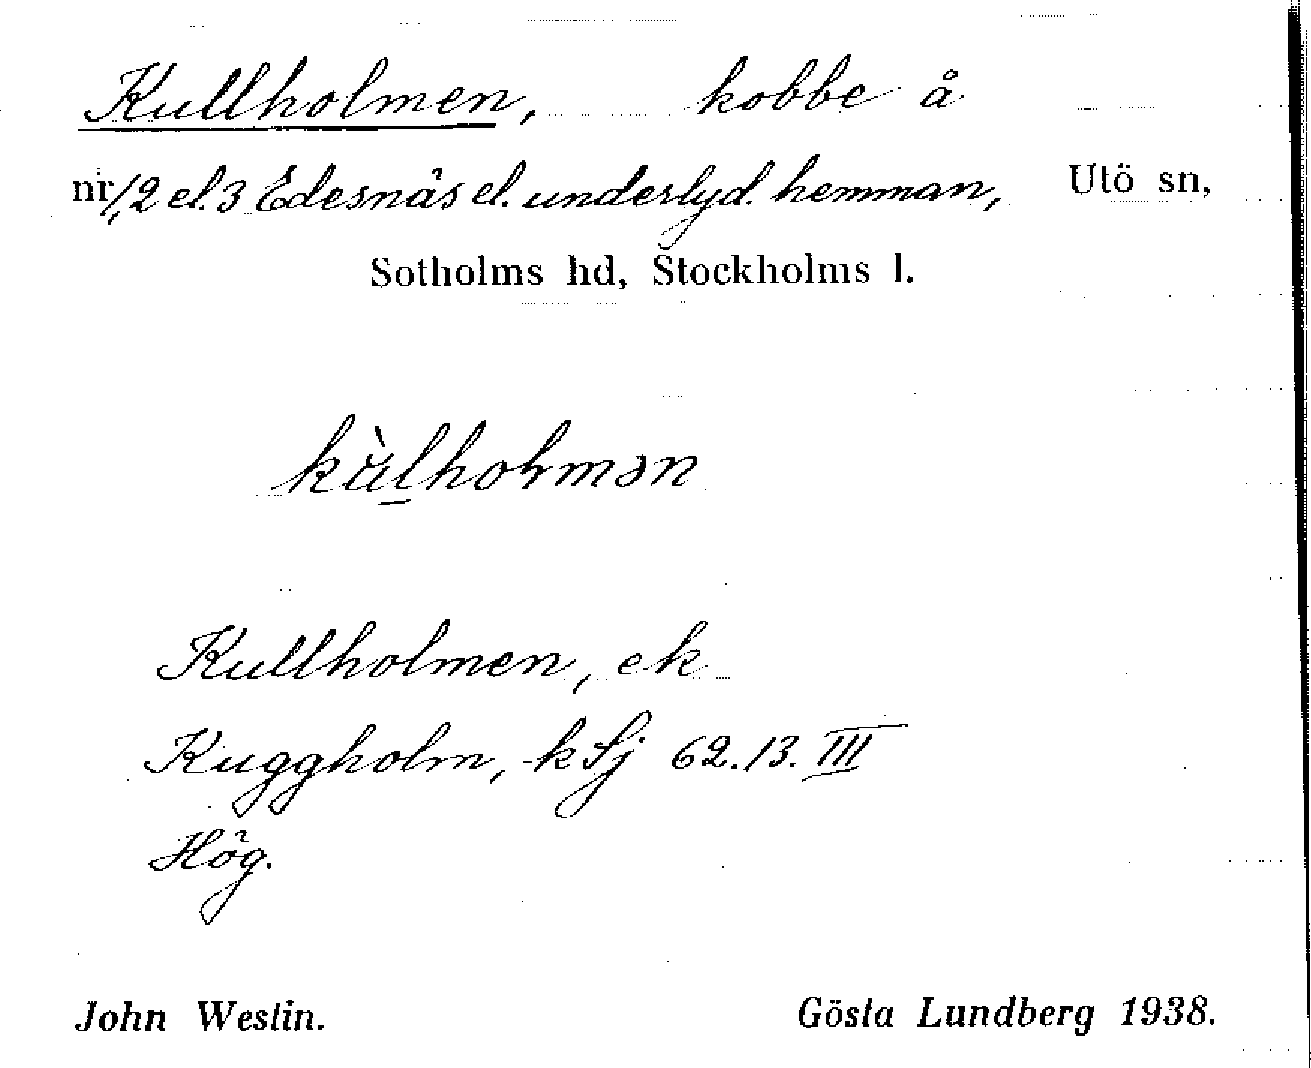 Kullholmen, kobbe å
nr 1, 2 el. 3 Edesnäs el. underlyd. hemman, Utö sn,
Sotholms hd, Stockholms l.
kùlholmən
Kullholmen, ek
Kuggholm, k Sj 62.13. III
Hög.
John Westin. Gösta Lundberg 1938.